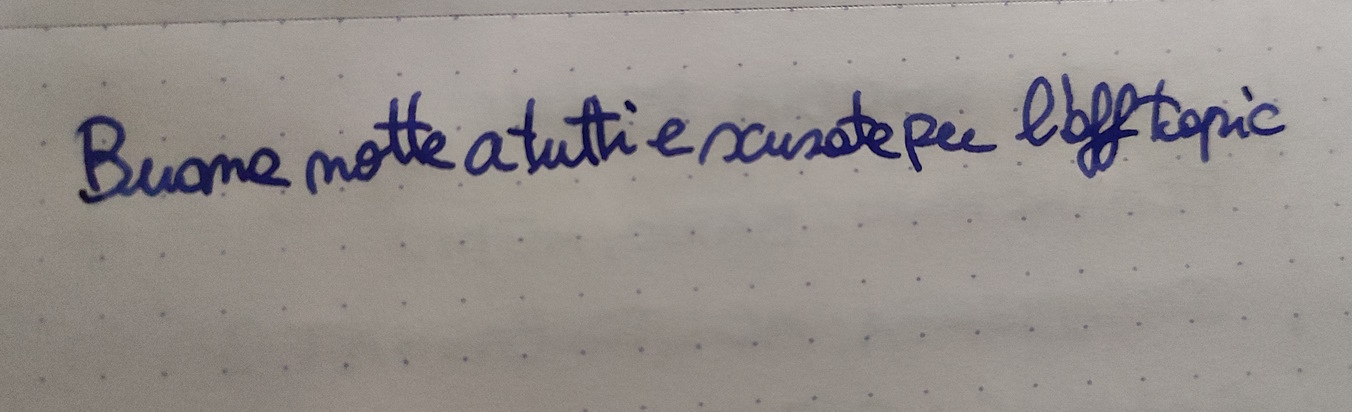 Buona notte a tutti e scusate per l'off topic